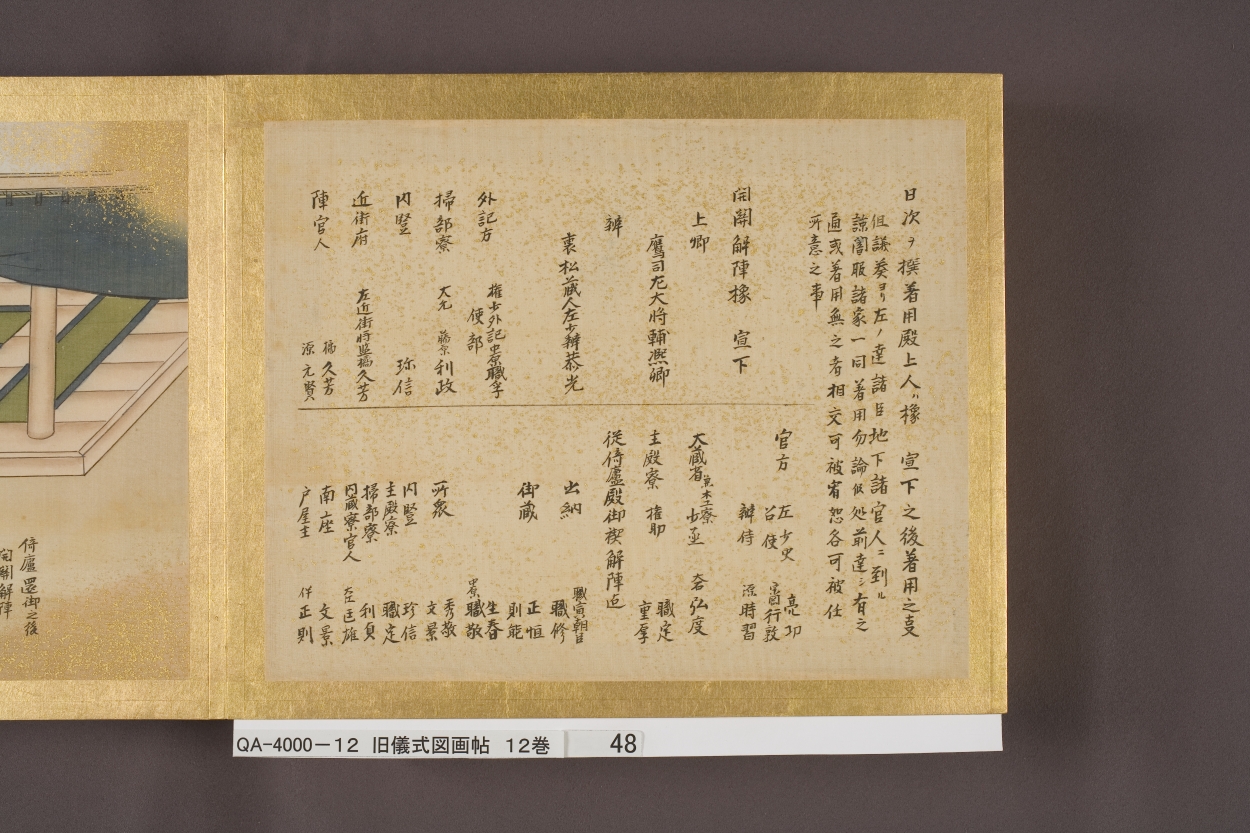 日次ヲ撰着用殿上人ハ橡 宣下之後着用之支
但議奏ヨリ左ノ達諸臣地下諸官人ニ到ル
諒闇服諸家一同着用勿論仮処前達シ有之
通或着用無之者相交可被宥恕各可被仕
所意之事
開關解陣橡 宣下
上卿
鷹司左大将輔熙卿
辨
裏松蔵人左少辨恭光
外記方 権少外記 職孚
使部
掃部寮 大允 藤原利政
内豎 珍信
近衛府 左近衛将監橘久芳
陣官人 橘久芳
源元賢
官方 左少史 亮功
召使 行敦
辨侍 源時習
大蔵省 兼木工寮 少丞 弘度
主殿寮 権助 職定
重厚
従倚廬殿御禊解陣迄
出納 職寅朝臣
職修
御蔵 正恒
則能
所衆 生春
職敬
秀敬
文景
内豎 珍信
主殿寮 職定
掃部寮 利貞
内蔵寮官人 匡雄
南座 文景
戸屋主 伴正則
倚廬還御之後
開關解陣
QA-4000-12 旧儀式図画帖 12巻 48